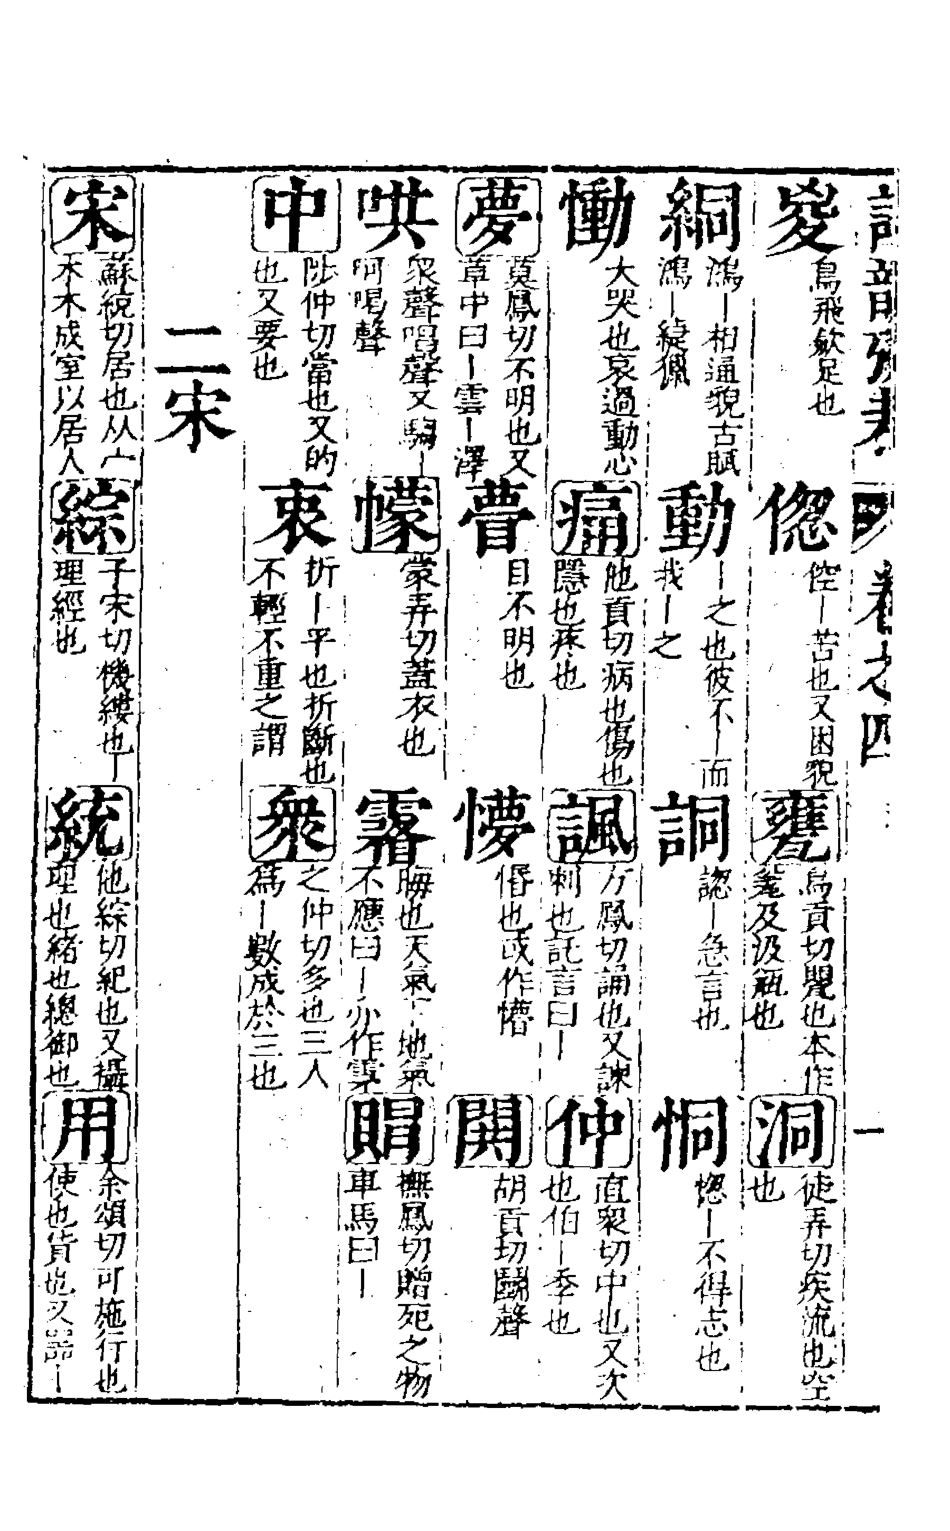 卷之四
一
嵏 鳥飛斂足也
傯 倥｜苦也又困貌
甕 烏貢切甖也本作
罋及汲缾也
洞 徒弄切疾流也空
也
絧 鴻｜相通貌古賦
鴻｜緁獵
動 ｜之也彼不｜而
我｜之
詷 謥｜急言也
恫 惚｜不得志也
慟 大哭也哀過動心
痛 他貢切病也傷也
隱也疼也
諷 方鳳切誦也又諫
刺也託言曰｜
仲 直衆切中也又次
也伯｜季也
夢 莫鳳切不明也又
草中曰｜雲｜澤
瞢 目不明也
懜 惛也或作懵
鬨 胡貢切鬭聲
哄 衆聲唱聲又駉｜
呵喝聲
幪 蒙弄切蓋衣也
霿 晦也天氣下地氣
不應曰｜亦作雺
賵 撫鳳切贈死之物
車馬曰｜
中 陟仲切當也又的
也又要也
衷 折｜平也折斷也
不輕不重之謂
衆 之仲切多也三人
爲｜數成於三也
二宋
宋 蘇統切居也从宀
木木成室以居人
綜 子宋切機縷也｜
理經也
統 他綜切紀也又攝
理也緒也總御也
用 余頌切可施行也
使也貨也又器｜